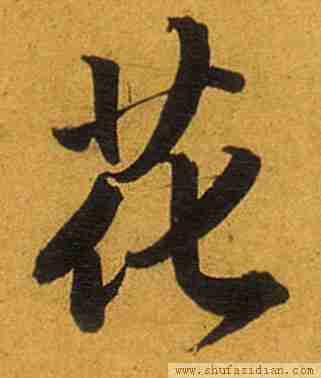 花
www.shufazidian.com